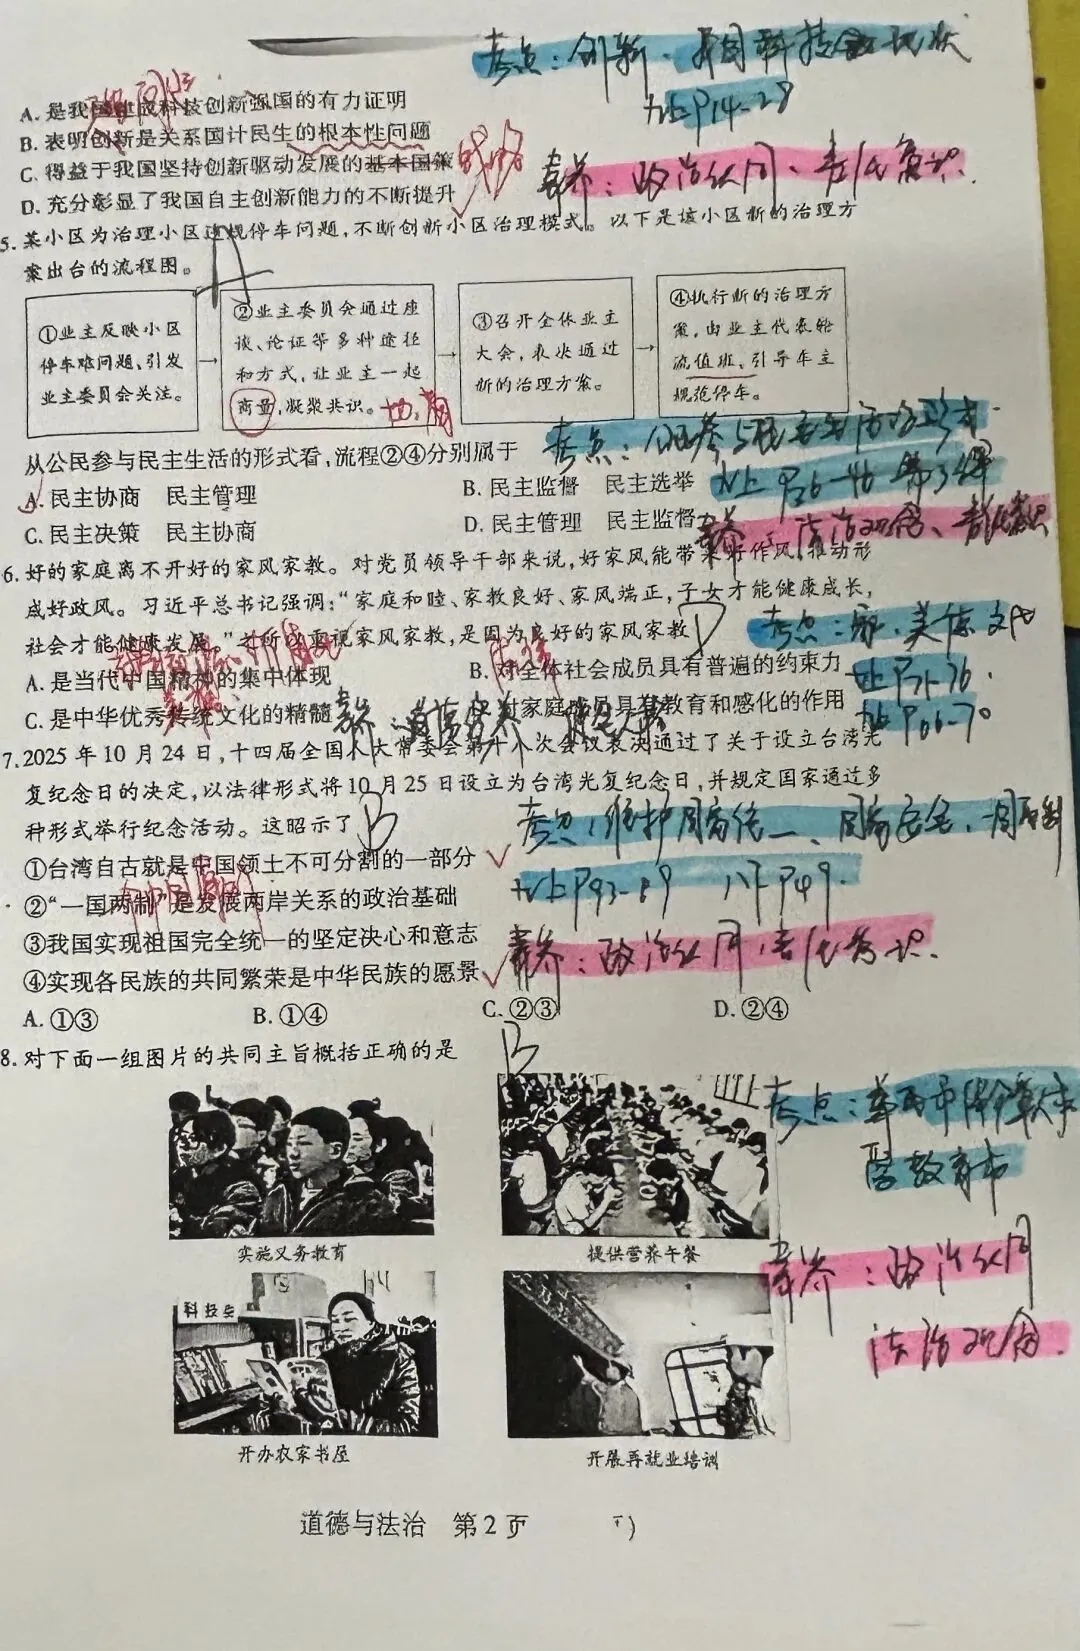 考点：创新．我国科技现状
九上P14-28
A. 是我国建成科技创新强国的有力证明
B. 表明创新是关系国计民生的根本性问题
C. 得益于我国坚持创新驱动发展的基本国策 战略
素养：政治认同、责任意识．
D. 充分彰显了我国自主创新能力的不断提升
5. 某小区为治理小区违规停车问题,不断创新小区治理模式。以下是该小区新的治理方
案出台的流程图。
A
①业主反映小区
停车难问题,引发
业主委员会关注。
②业主委员会通过座
谈、论证等多种途径
和方式,让业主一起
商量,凝聚共识。
③召开全体业主
大会,表决通过
新的治理方案。
④执行新的治理方
案,由业主代表轮
流值班、引导车主
规范停车。
从公民参与民主生活的形式看,流程②④分别属于
考点：公民参与民主生活的形式
A. 民主协商 民主管理
B. 民主监督 民主选举
九上P36-46
C. 民主决策 民主协商
D. 民主管理 民主监督
素养：法治观念、责任意识
6. 好的家庭离不开好的家风家教。对党员领导干部来说,好家风能带来好作风,推动形
成好政风。习近平总书记强调:“家庭和睦、家教良好、家风端正,子女才能健康成长,
社会才能健康发展。”之所以重视家风家教,是因为良好的家风家教
D
考点：家．美德 文化
A. 是当代中国精神的集中体现
B. 对全体社会成员具有普遍的约束力
九上P71-76．
C. 是中华优秀传统文化的精髓
D. 对家庭成员具有教育和感化的作用
九上P66-70
素养：道德修养
7. 2025年10月24日,十四届全国人大常委会第十八次会议表决通过了关于设立台湾光
复纪念日的决定,以法律形式将10月25日设立为台湾光复纪念日,并规定国家通过多
种形式举行纪念活动。这昭示了
B
考点：维护国家统一、国家安全、一国两制
①台湾自古就是中国领土不可分割的一部分
九上P93-89 八下P49．
②“一国两制”是发展两岸关系的政治基础
③我国实现祖国完全统一的坚定决心和意志
素养：政治认同．责任意识．
④实现各民族的共同繁荣是中华民族的愿景
A. ①③
B. ①④
C. ②③
D. ②④
8. 对下面一组图片的共同主旨概括正确的是
B
考点：
教育
实施义务教育
提供营养午餐
素养：政治认同
法治观念．
科技类
开办农家书屋
开展再就业培训
道德与法治 第2页